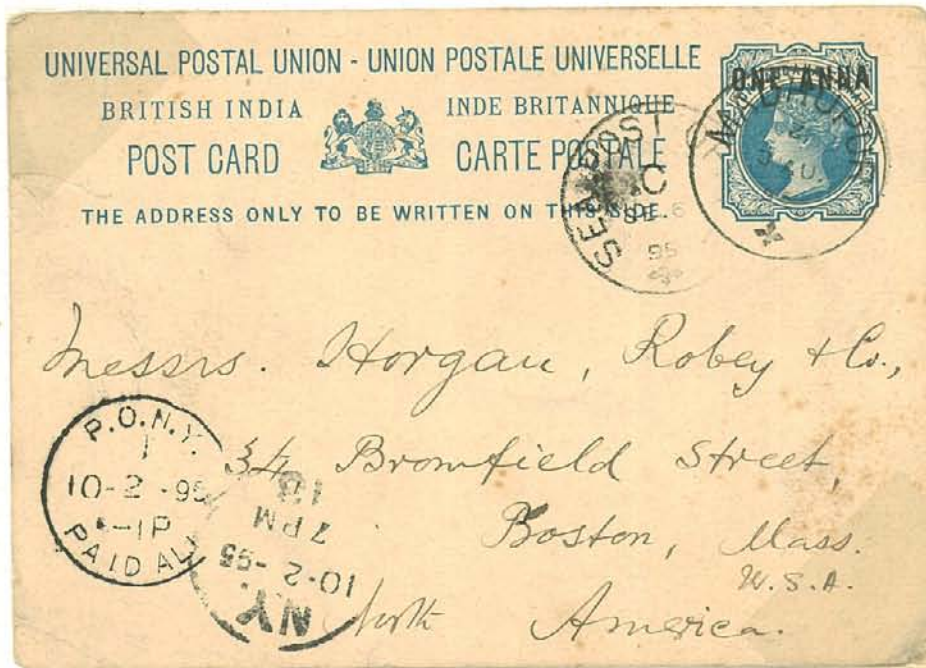 UNIVERSAL POSTAL UNION - UNION POSTALE UNIVERSELLE
BRITISH INDIA INDE BRITANNIQUE
POST CARD CARTE POSTALE
THE ADDRESS ONLY TO BE WRITTEN ON THIS SIDE.
ONE ANNA
SEA POST
C
SE 6
95
Messrs. Horgan, Robey & Co.,
34 Bromfield Street,
Boston, Mass.
U.S.A.
North America.
P.O.N.Y.
1
10-2-95
-1P
PAID ALL
N.Y.
10-2-95
7PM